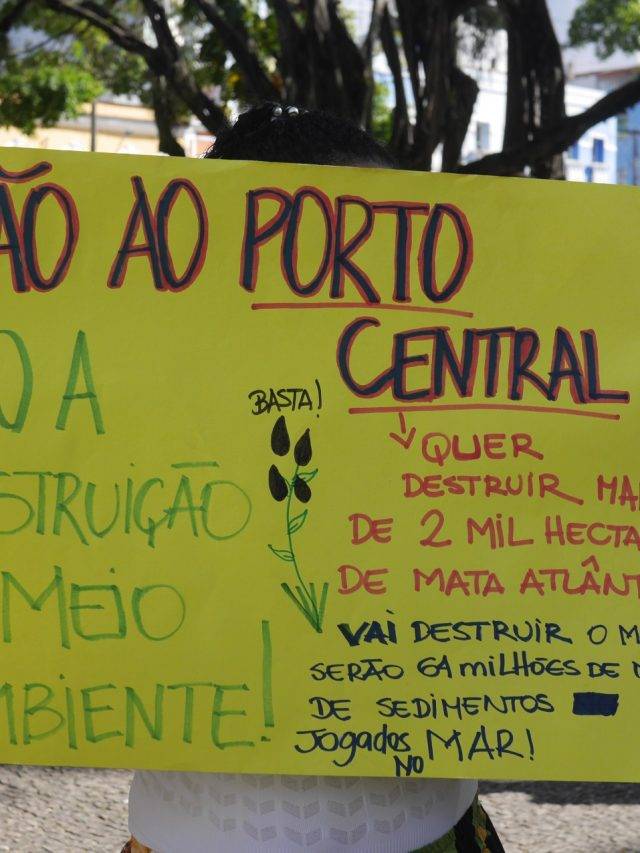 ÃO AO PORTO
CENTRAL
O A
STRUIÇÃO
MEIO
MBIENTE!
BASTA!
QUER
DESTRUIR MAI
DE 2 MIL HECTA
DE MATA ATLÂNT
VAI DESTRUIR O M
SERÃO 64 MILHÕES DE
DE SEDIMENTOS
JOGADOS NO MAR!